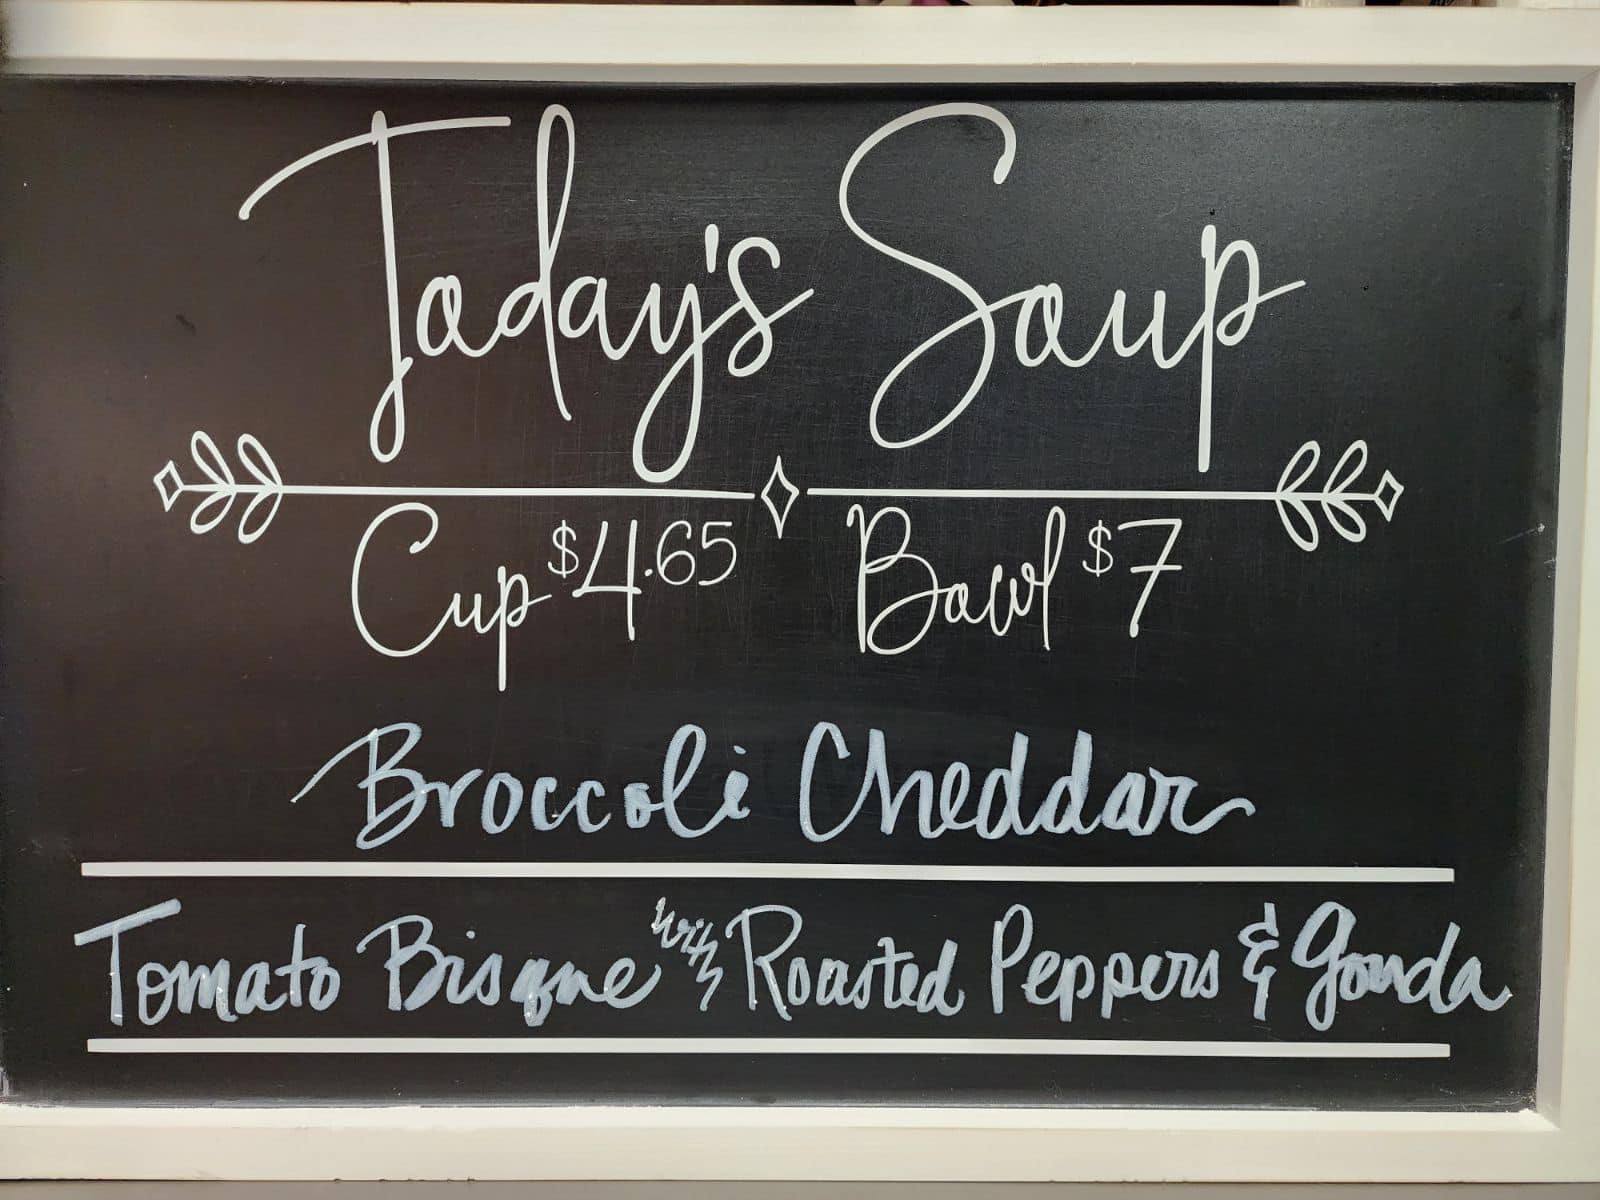 Today's Soup
Cup $4.65 Bowl $7
Broccoli Cheddar
Tomato Bisque with Roasted Peppers & Gouda